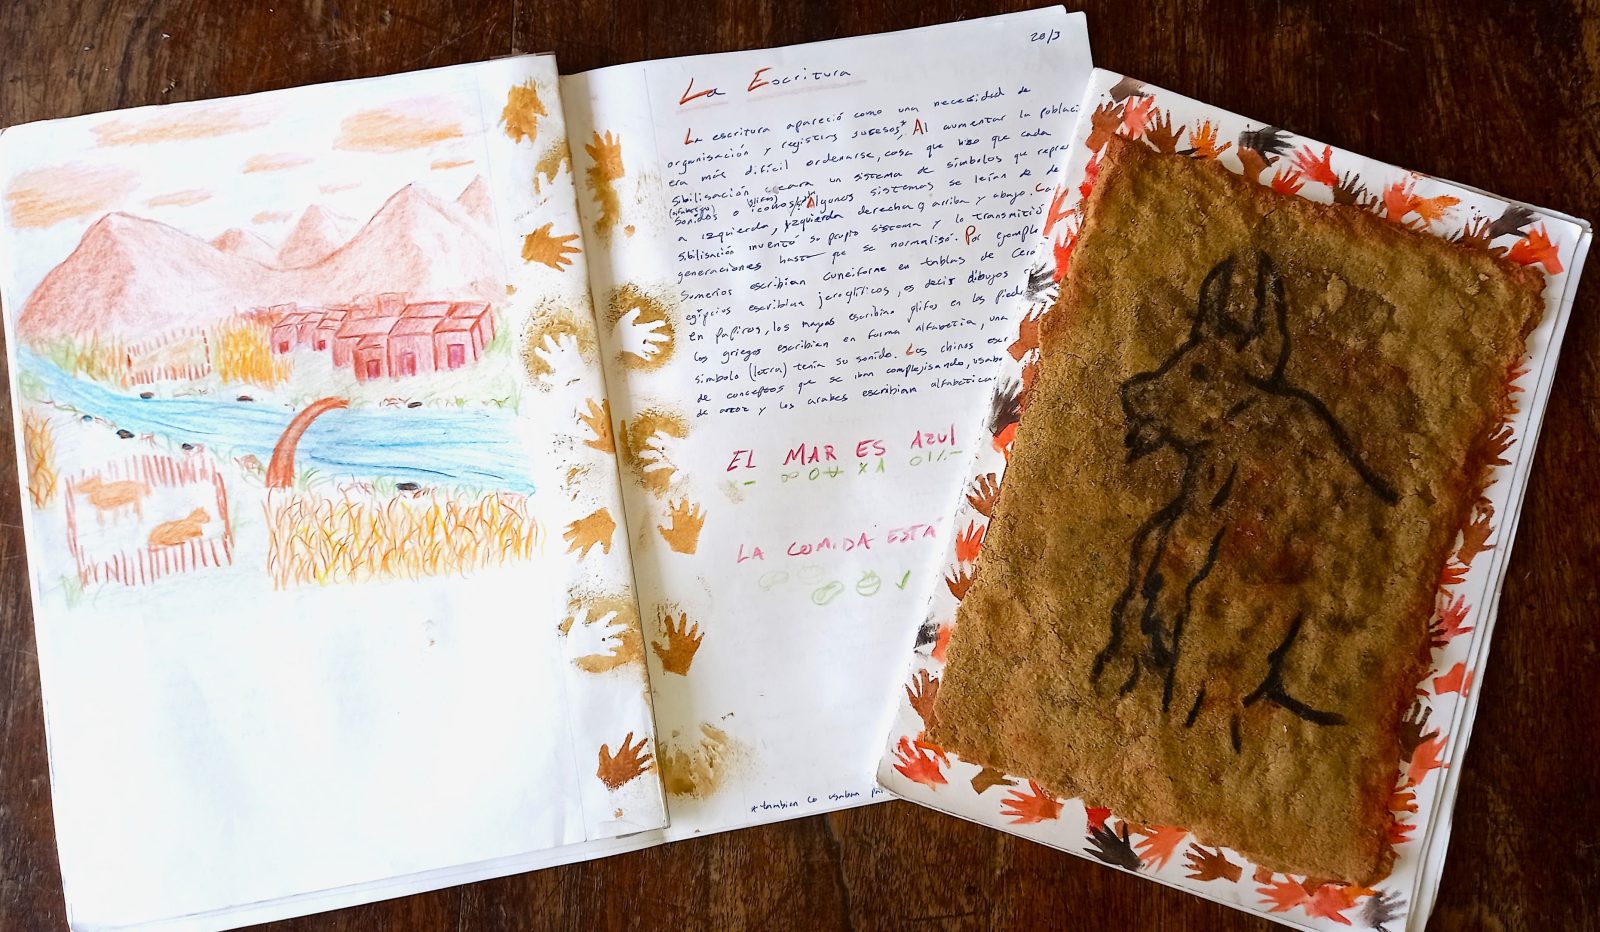 20/3
La Escritura
La escritura apareció como una necesidad de
organisación y registrar susesos*. Al aumentar la poblaci
era más dificil ordenarse, cosa que hizo que cada
sibilisación creara un sistema de símbolos que repre
(alfabetico)
sonidos o iconos. Algunos sistemas se leían de de
a izquierda, izquierda derecha o arriba y abajo. Ca
sibilisación inventó su propio sistema y lo transmitió
generaciones hasta que se normalisó. Por ejemplo
Somerios escribian cuneiforme en tablas de Cera
egipcios escribian jeroglíficos, es decir dibujos
en papiros, los mayas escribian glifos en las piedr
los griegos escribian en forma alfabetica, una
símbolo (letra) tenía su sonido. Los chinos escr
de conceptos que se iban complejisando, usaba
de arroz y los arabes escribian alfabetica
EL MAR ES AZUL
LA COMIDA ESTA
* tambien lo usaban par